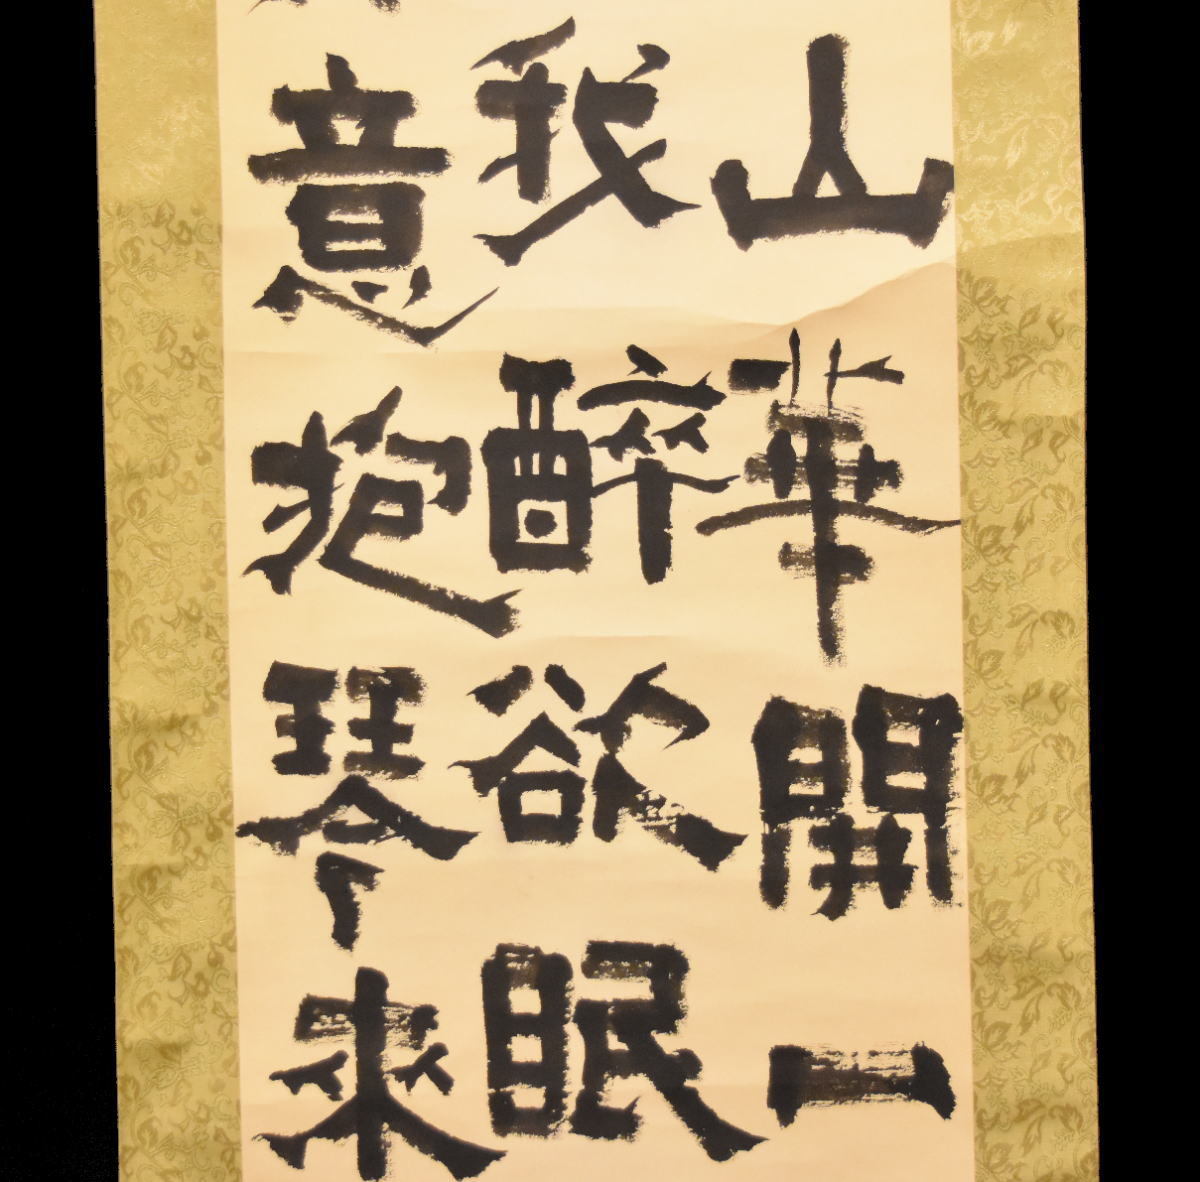 山華開一
我醉欲眠
意抱琴來